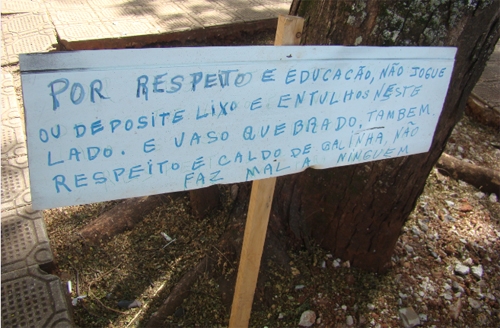 POR RESPEITO E EDUCACÃO, NÃO JOGUE
OU DEPOSITE LIXO E ENTULHOS NESTE
LADO. E VASO QUEBRADO. TAMBEM.
RESPEITO E CALDO DE GALINHA, NÃO
FAZ MAL A NINGUEM